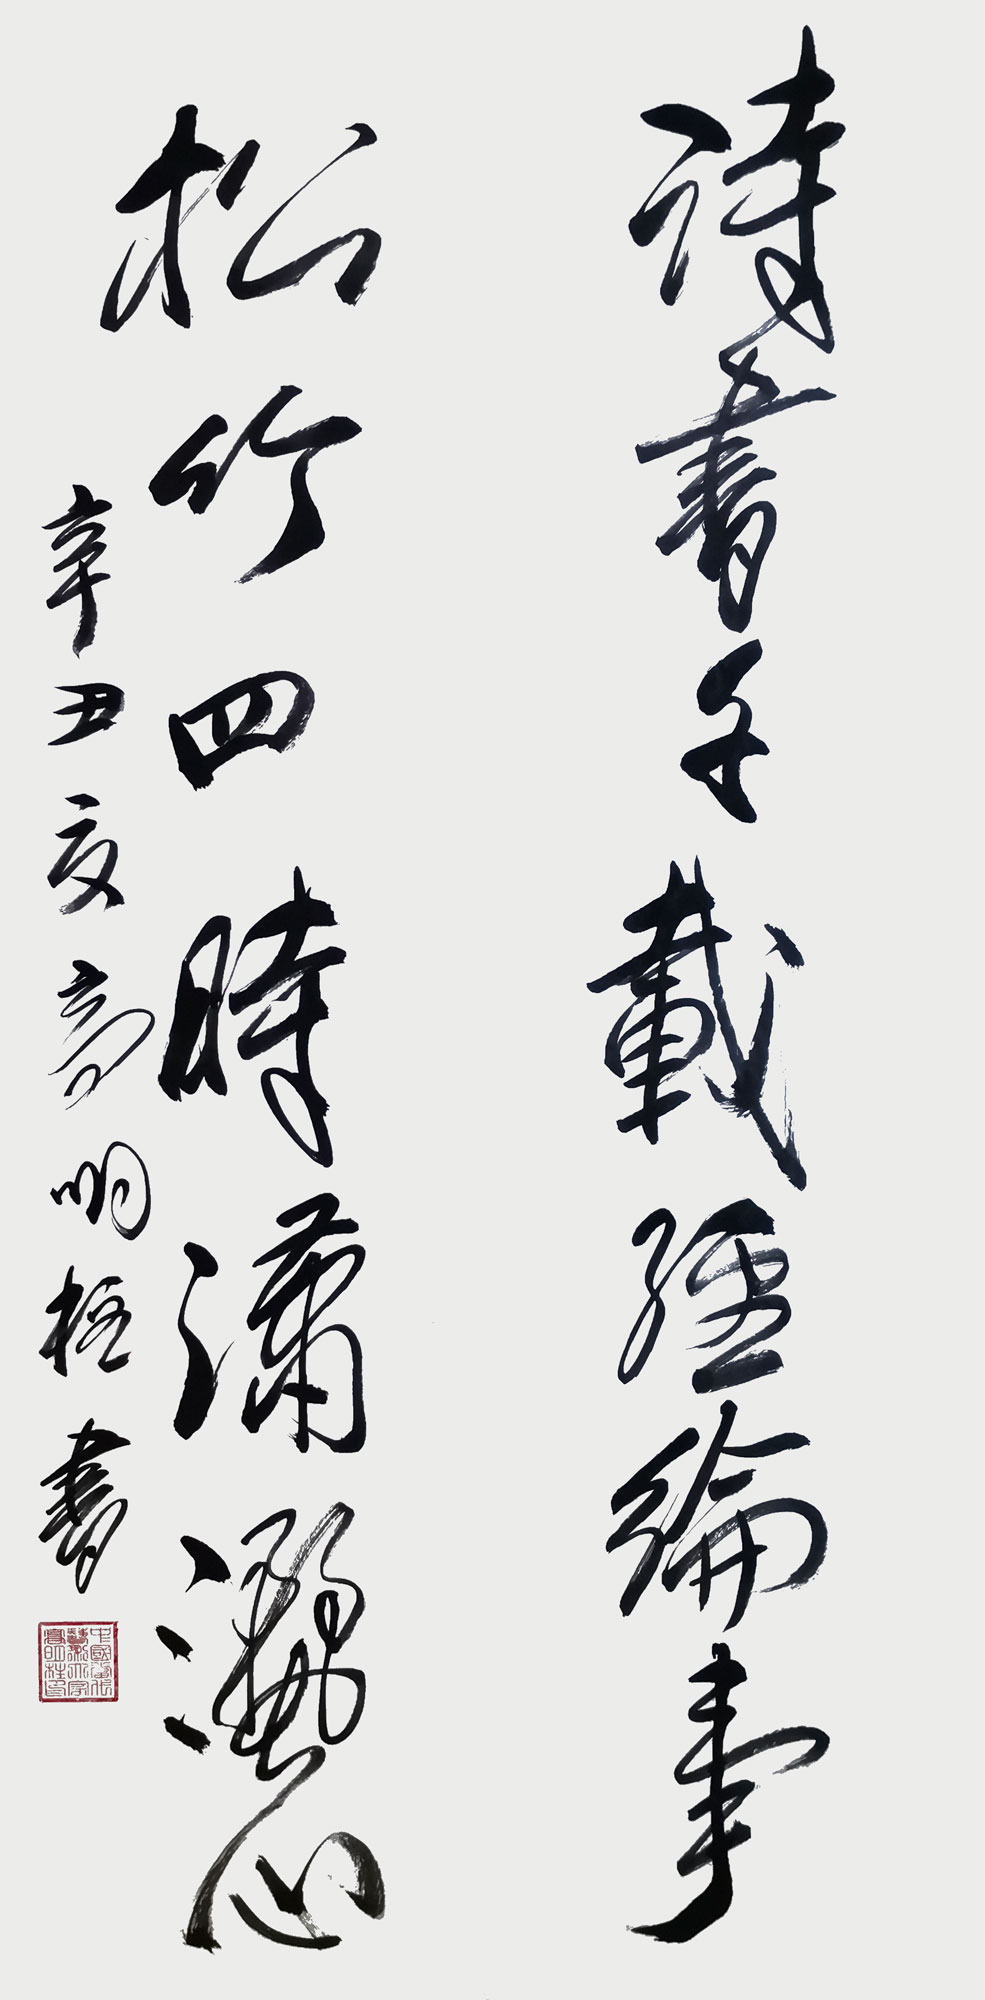 詩書千載經綸事
松竹四時瀟灑心
辛丑夏高明柱書